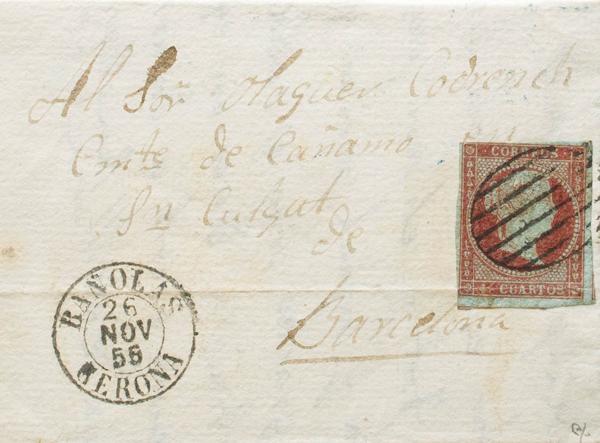 Al Sor Olaguer Codrench
Cmte de Cañamo en
Sn Culgat
de
Barcelona
CORREOS
4 CUARTOS
BAÑOLAS
26
NOV
56
GERONA